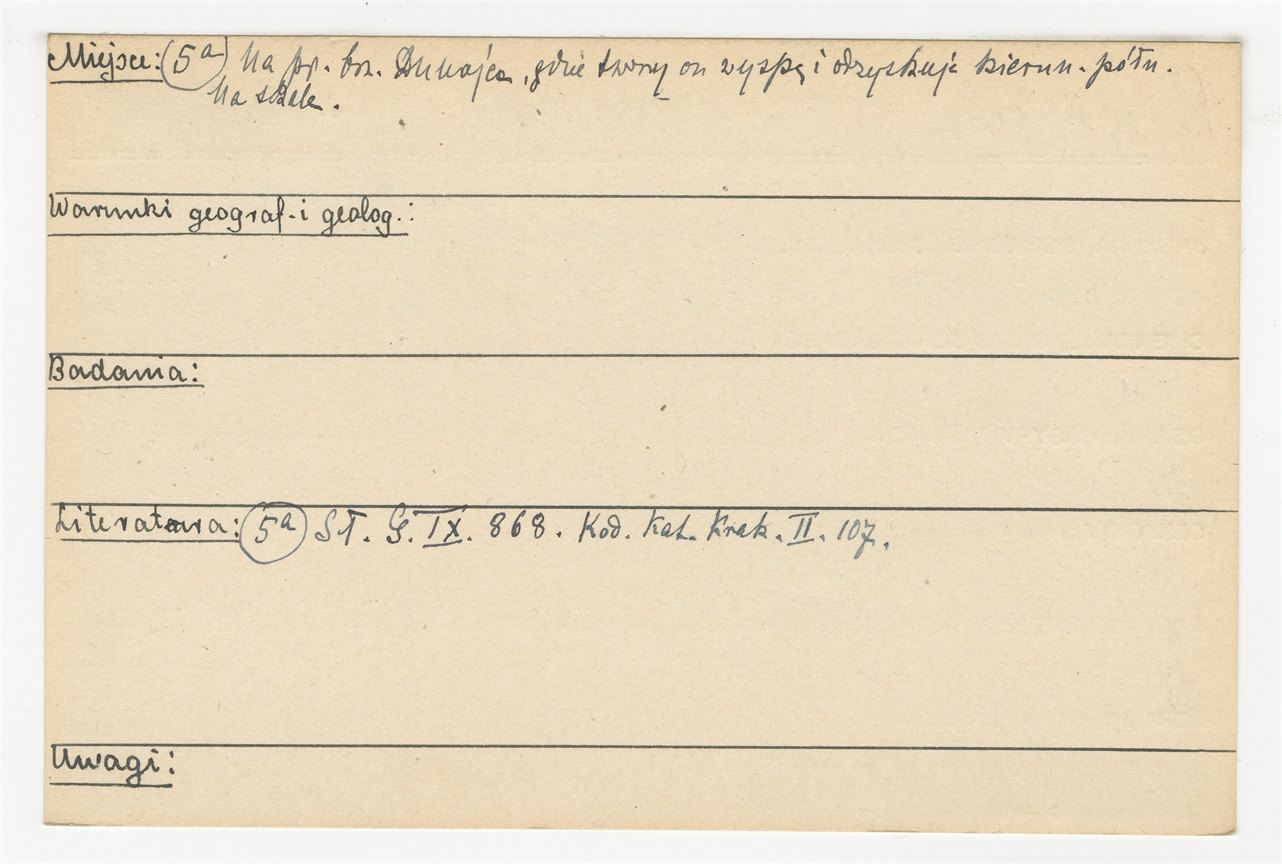 Miejsce: (5a) Na pr. brz. Dunajca, gdzie tworzy on wyspę i odzyskuje kierun. półn.
Na skale.
Warunki geograf. i geolog.:
Badania:
Literatura: (5a) Sł. G. IX. 868. Kod. Kat. Krak. II. 107.
Uwagi: